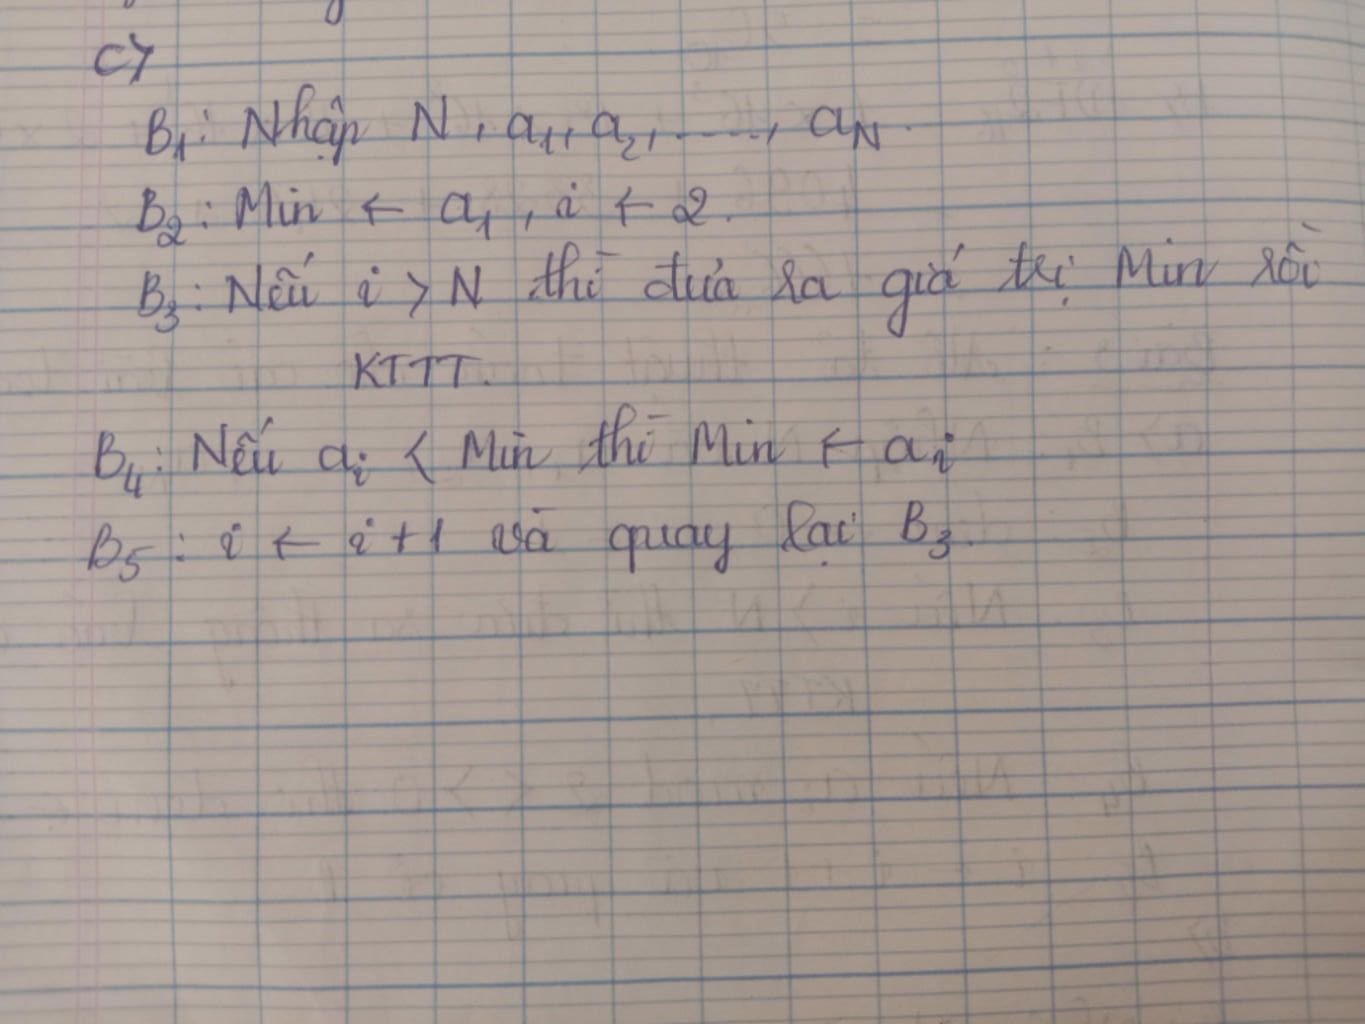 c)
B₁: Nhập N, a₁, a₂, ....., aN.
B₂: Min ← a₁, i ← 2.
B₃: Nếu i > N thì đưa ra giá trị Min rồi
KTTT.
B₄: Nếu aᵢ < Min thì Min ← aᵢ
B₅: i ← i+1 và quay lại B₃.